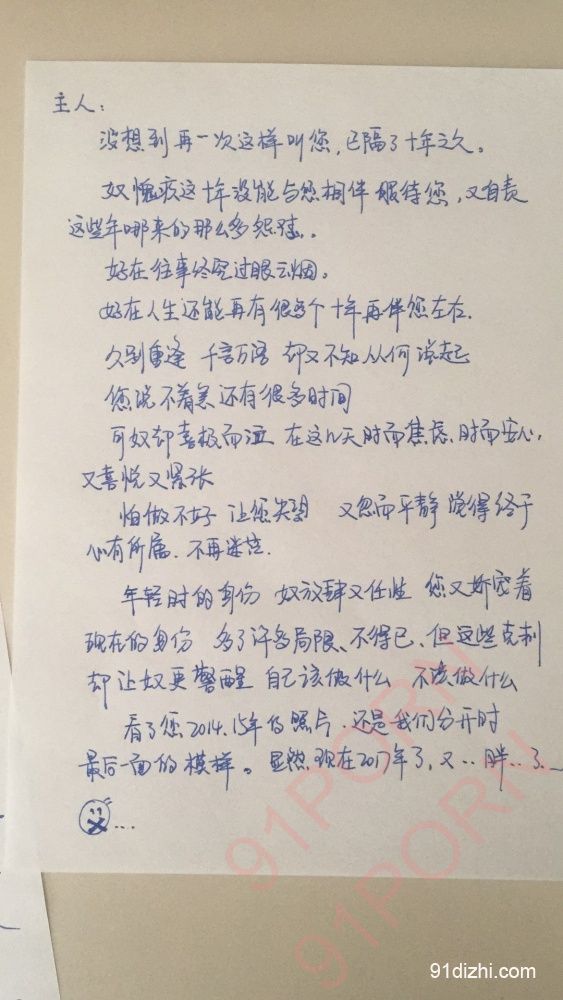 主人：
没想到再一次这样叫您，已隔了十年之久。
奴愧疚这十年没能与您相伴 服侍您，又自责
这些年哪来的那么多怨怼。
好在往事终究过眼云烟。
好在人生还能再有很多个十年再伴您左右.
久别重逢 千言万语 却又不知从何说起
您说不着急还有很多时间
可奴却喜极而泣 在这几天时而焦虑.时而安心,
又喜悦又紧张
怕做不好 让您失望 又忽而平静 觉得终于
心有所属.不再迷茫.
年轻时的身份 奴放肆又任性 您又娇宠着
现在的身份 多了许多局限、不得已.但这些克制
却让奴更警醒 自己该做什么 不该做什么
看了您2014.15年的照片.还是我们分开时
最后一面的模样。显然现在2017年了,又..胖..了
...
91PORN
91PORN
91dizhi.com